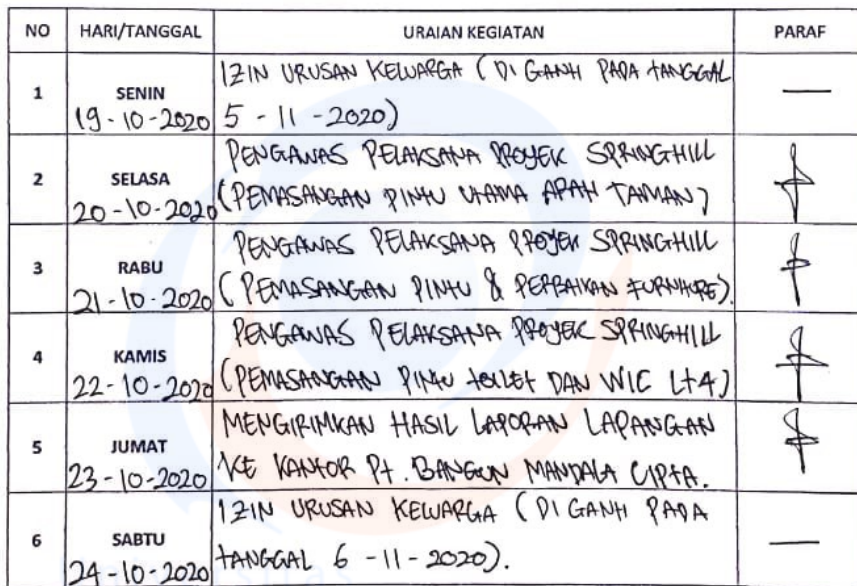 NO HARI/TANGGAL URAIAN KEGIATAN PARAF
1 SENIN 19-10-2020 IZIN URUSAN KELUARGA (DI GANTI PADA TANGGAL
5-11-2020) —
2 SELASA 20-10-2020 PENGAWAS PELAKSANA PROYEK SPRINGHILL
(PEMASANGAN PINTU UTAMA APAH TAMAN)
3 RABU 21-10-2020 PENGAWAS PELAKSANA PROYEK SPRINGHILL
(PEMASANGAN PINTU & PERBAIKAN FURNITURE).
4 KAMIS 22-10-2020 PENGAWAS PELAKSANA PROYEK SPRINGHILL
(PEMASANGAN PINTU TOILET DAN WIC LT4)
5 JUMAT 23-10-2020 MENGIRIMKAN HASIL LAPORAN LAPANGAN
KE KANTOR PT. BANGUN MANDALA CIPTA.
6 SABTU 24-10-2020 IZIN URUSAN KELUARGA (DI GANTI PADA
TANGGAL 6-11-2020). —